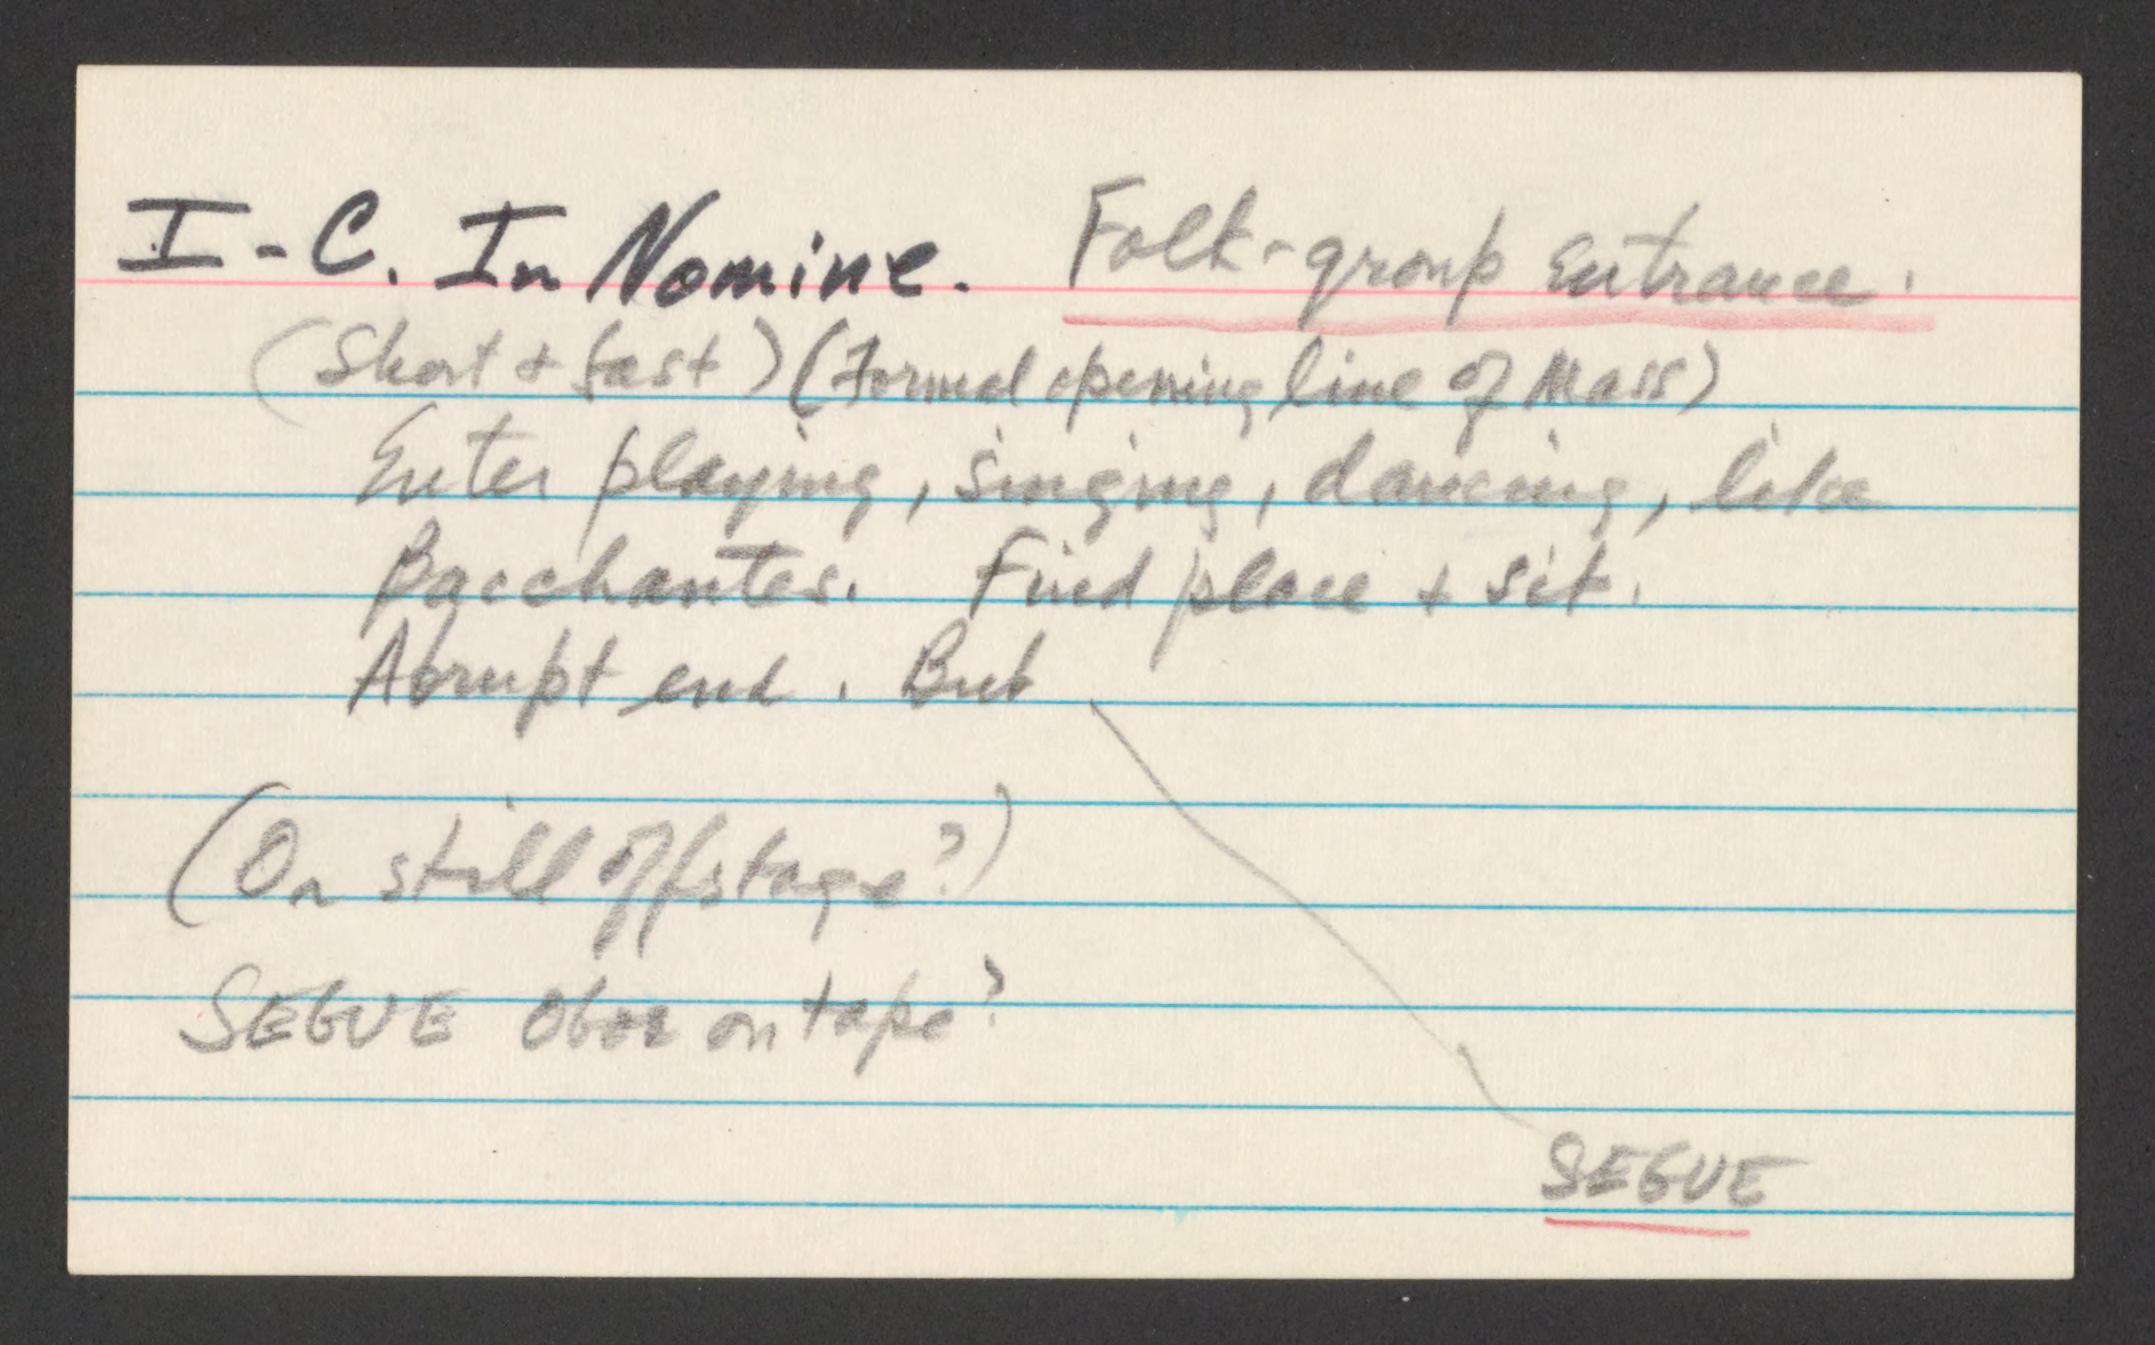 I-C. In Nomine. Folk-group Entrance.
(Short + fast) (Formal opening line of Mass)
Enter playing, singing, dancing, like
Bacchantes. Find place + sit.
Abrupt end. But
(Or still offstage?)
SEGUE Oboe on tape?
SEGUE